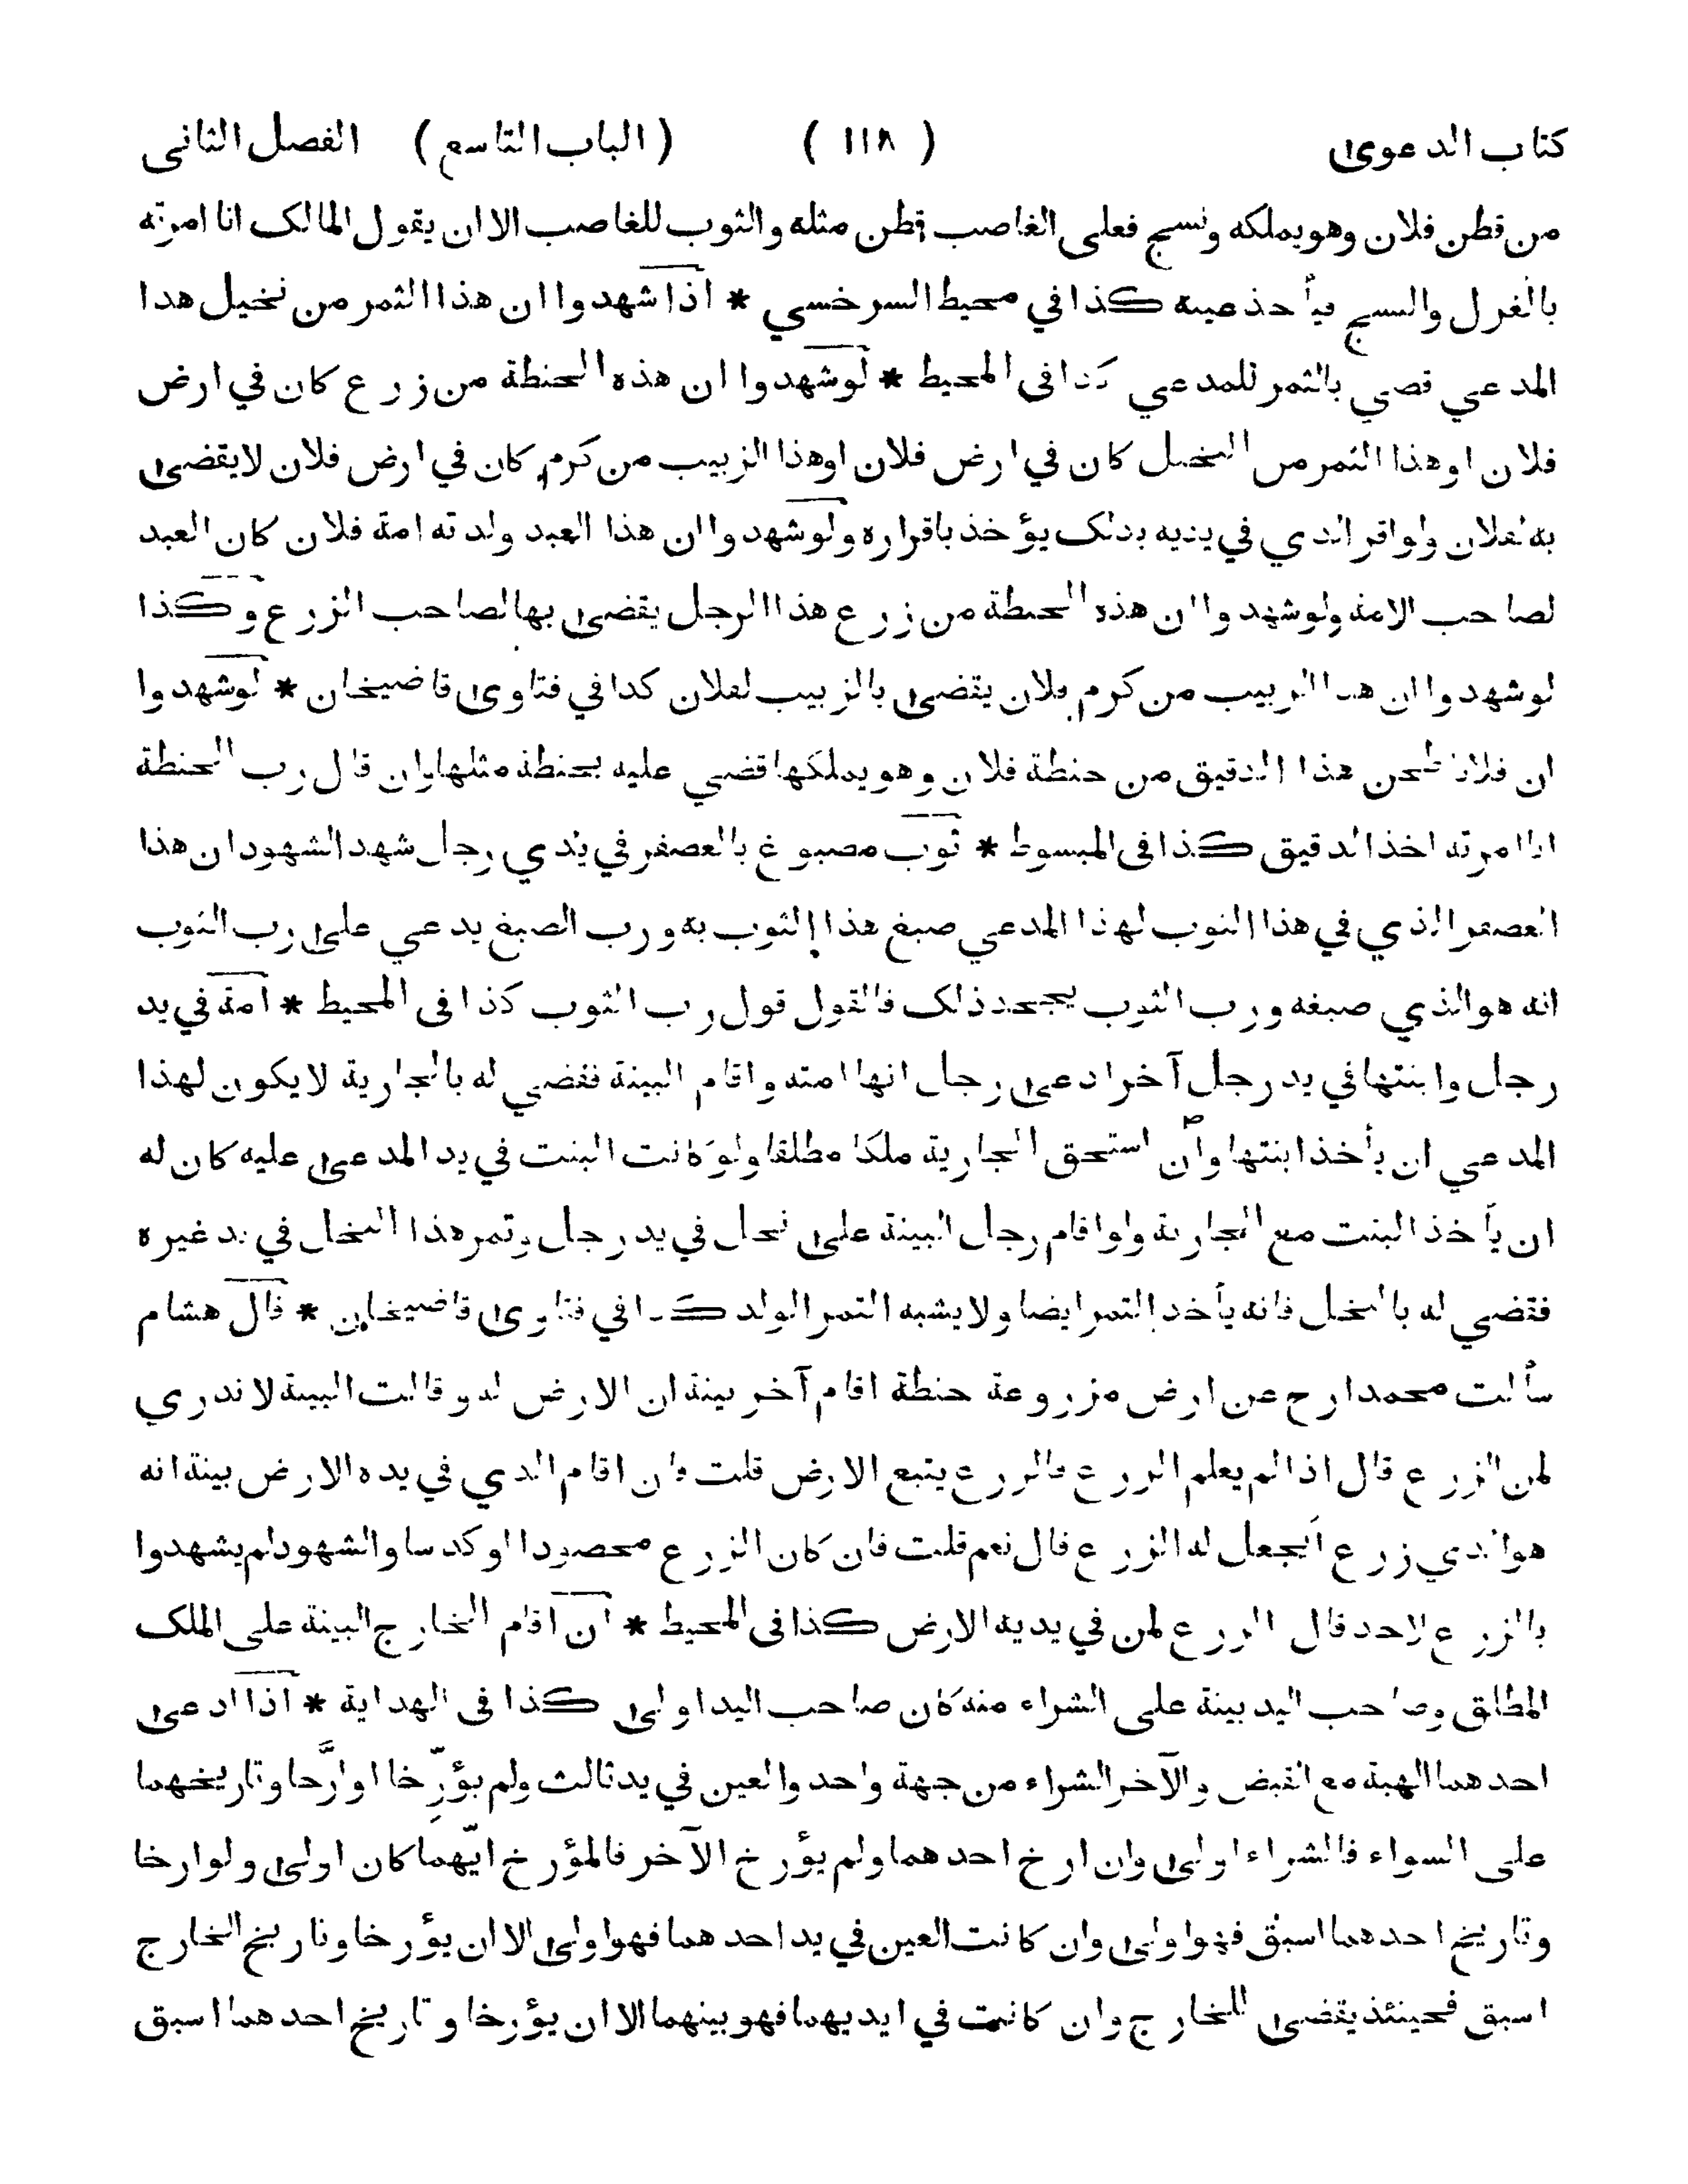 كتاب الدعوى ( ١١٨ ) ( الباب التاسع ) الفصل الثانى
من قطن فلان وهو يملكه ونسج فعلى الغاصب قطن مثله والثوب للغاصب الا ان يقول المالك انا امرته
بالغزل والنسج فيأخذ عينه كذا في محيط السرخسي * اذا شهدوا ان هذا الثمر من نخيل هذا
المدعي قضي بالثمر للمدعي كذا فى المحيط * لو شهدوا ان هذه الحنطة من زرع كان في ارض
فلان او هذا التمر من النخل كان في ارض فلان او هذا الزبيب من كرم كان في ارض فلان لا يقضى
به لفلان ولو اقر الذي في يديه بذلك يؤخذ باقراره ولو شهدوا ان هذا العبد ولدته امة فلان كان العبد
لصاحب الامة ولو شهدوا ان هذه الحنطة من زرع هذا الرجل يقضى بها لصاحب الزرع وكذا
لو شهدوا ان هذا الزبيب من كرم فلان يقضى بالزبيب لفلان كذا في فتاوى قاضيخان * لو شهدوا
ان فلانا طحن هذا الدقيق من حنطة فلان وهو يملكها قضي عليه بحنطة مثلها وان قال رب الحنطة
انا امرته اخذ الدقيق كذا فى المبسوط * ثوب مصبوغ بالعصفر في يدي رجل شهد الشهود ان هذا
العصفر الذي في هذا الثوب لهذا المدعي صبغ هذا الثوب به ورب الصبغ يدعي على رب الثوب
انه هو الذي صبغه ورب الثوب يجحد ذلك فالقول قول رب الثوب كذا فى المحيط * امة في يد
رجل وابنتها في يد رجل آخر ادعى رجل انها امته واقام البينة فقضي له بالجارية لا يكون لهذا
المدعي ان يأخذ ابنتها وان استحق الجارية ملكا مطلقا ولو كانت البنت في يد المدعى عليه كان له
ان يأخذ البنت مع الجارية ولو اقام رجل البينة على نخل في يد رجل وتمر هذا النخل في يد غيره
فقضي له بالنخل فانه يأخذ التمر ايضا ولا يشبه التمر الولد كذا في فتاوى قاضيخان * قال هشام
سألت محمدا رح عن ارض مزروعة حنطة اقام آخر بينة ان الارض له وقالت البينة لا ندري
لمن الزرع قال اذا لم يعلم الزرع فالزرع يتبع الارض قلت فان اقام الذي في يده الارض بينة انه
هو الذي زرع أيجعل له الزرع قال نعم قلت فان كان الزرع محصودا او كدسا والشهود لم يشهدوا
بالزرع لاحد قال الزرع لمن في يديه الارض كذا فى المحيط * ان اقام الخارج البينة على الملك
المطلق وصاحب اليد بينة على الشراء منه كان صاحب اليد اولى كذا فى الهداية * اذا ادعى
احدهما الهبة مع القبض والآخر الشراء من جهة واحد والعين في يد ثالث ولم يؤرّخا او ارّخا وتاريخهما
على السواء فالشراء اولى وان ارخ احدهما ولم يؤرخ الآخر فالمؤرخ ايّهما كان اولى ولو ارخا
وتاريخ احدهما اسبق فهو اولى وان كانت العين في يد احدهما فهو اولى الا ان يؤرخا وتاريخ الخارج
اسبق فحينئذ يقضى للخارج وان كانت في ايديهما فهو بينهما الا ان يؤرخا وتاريخ احدهما اسبق